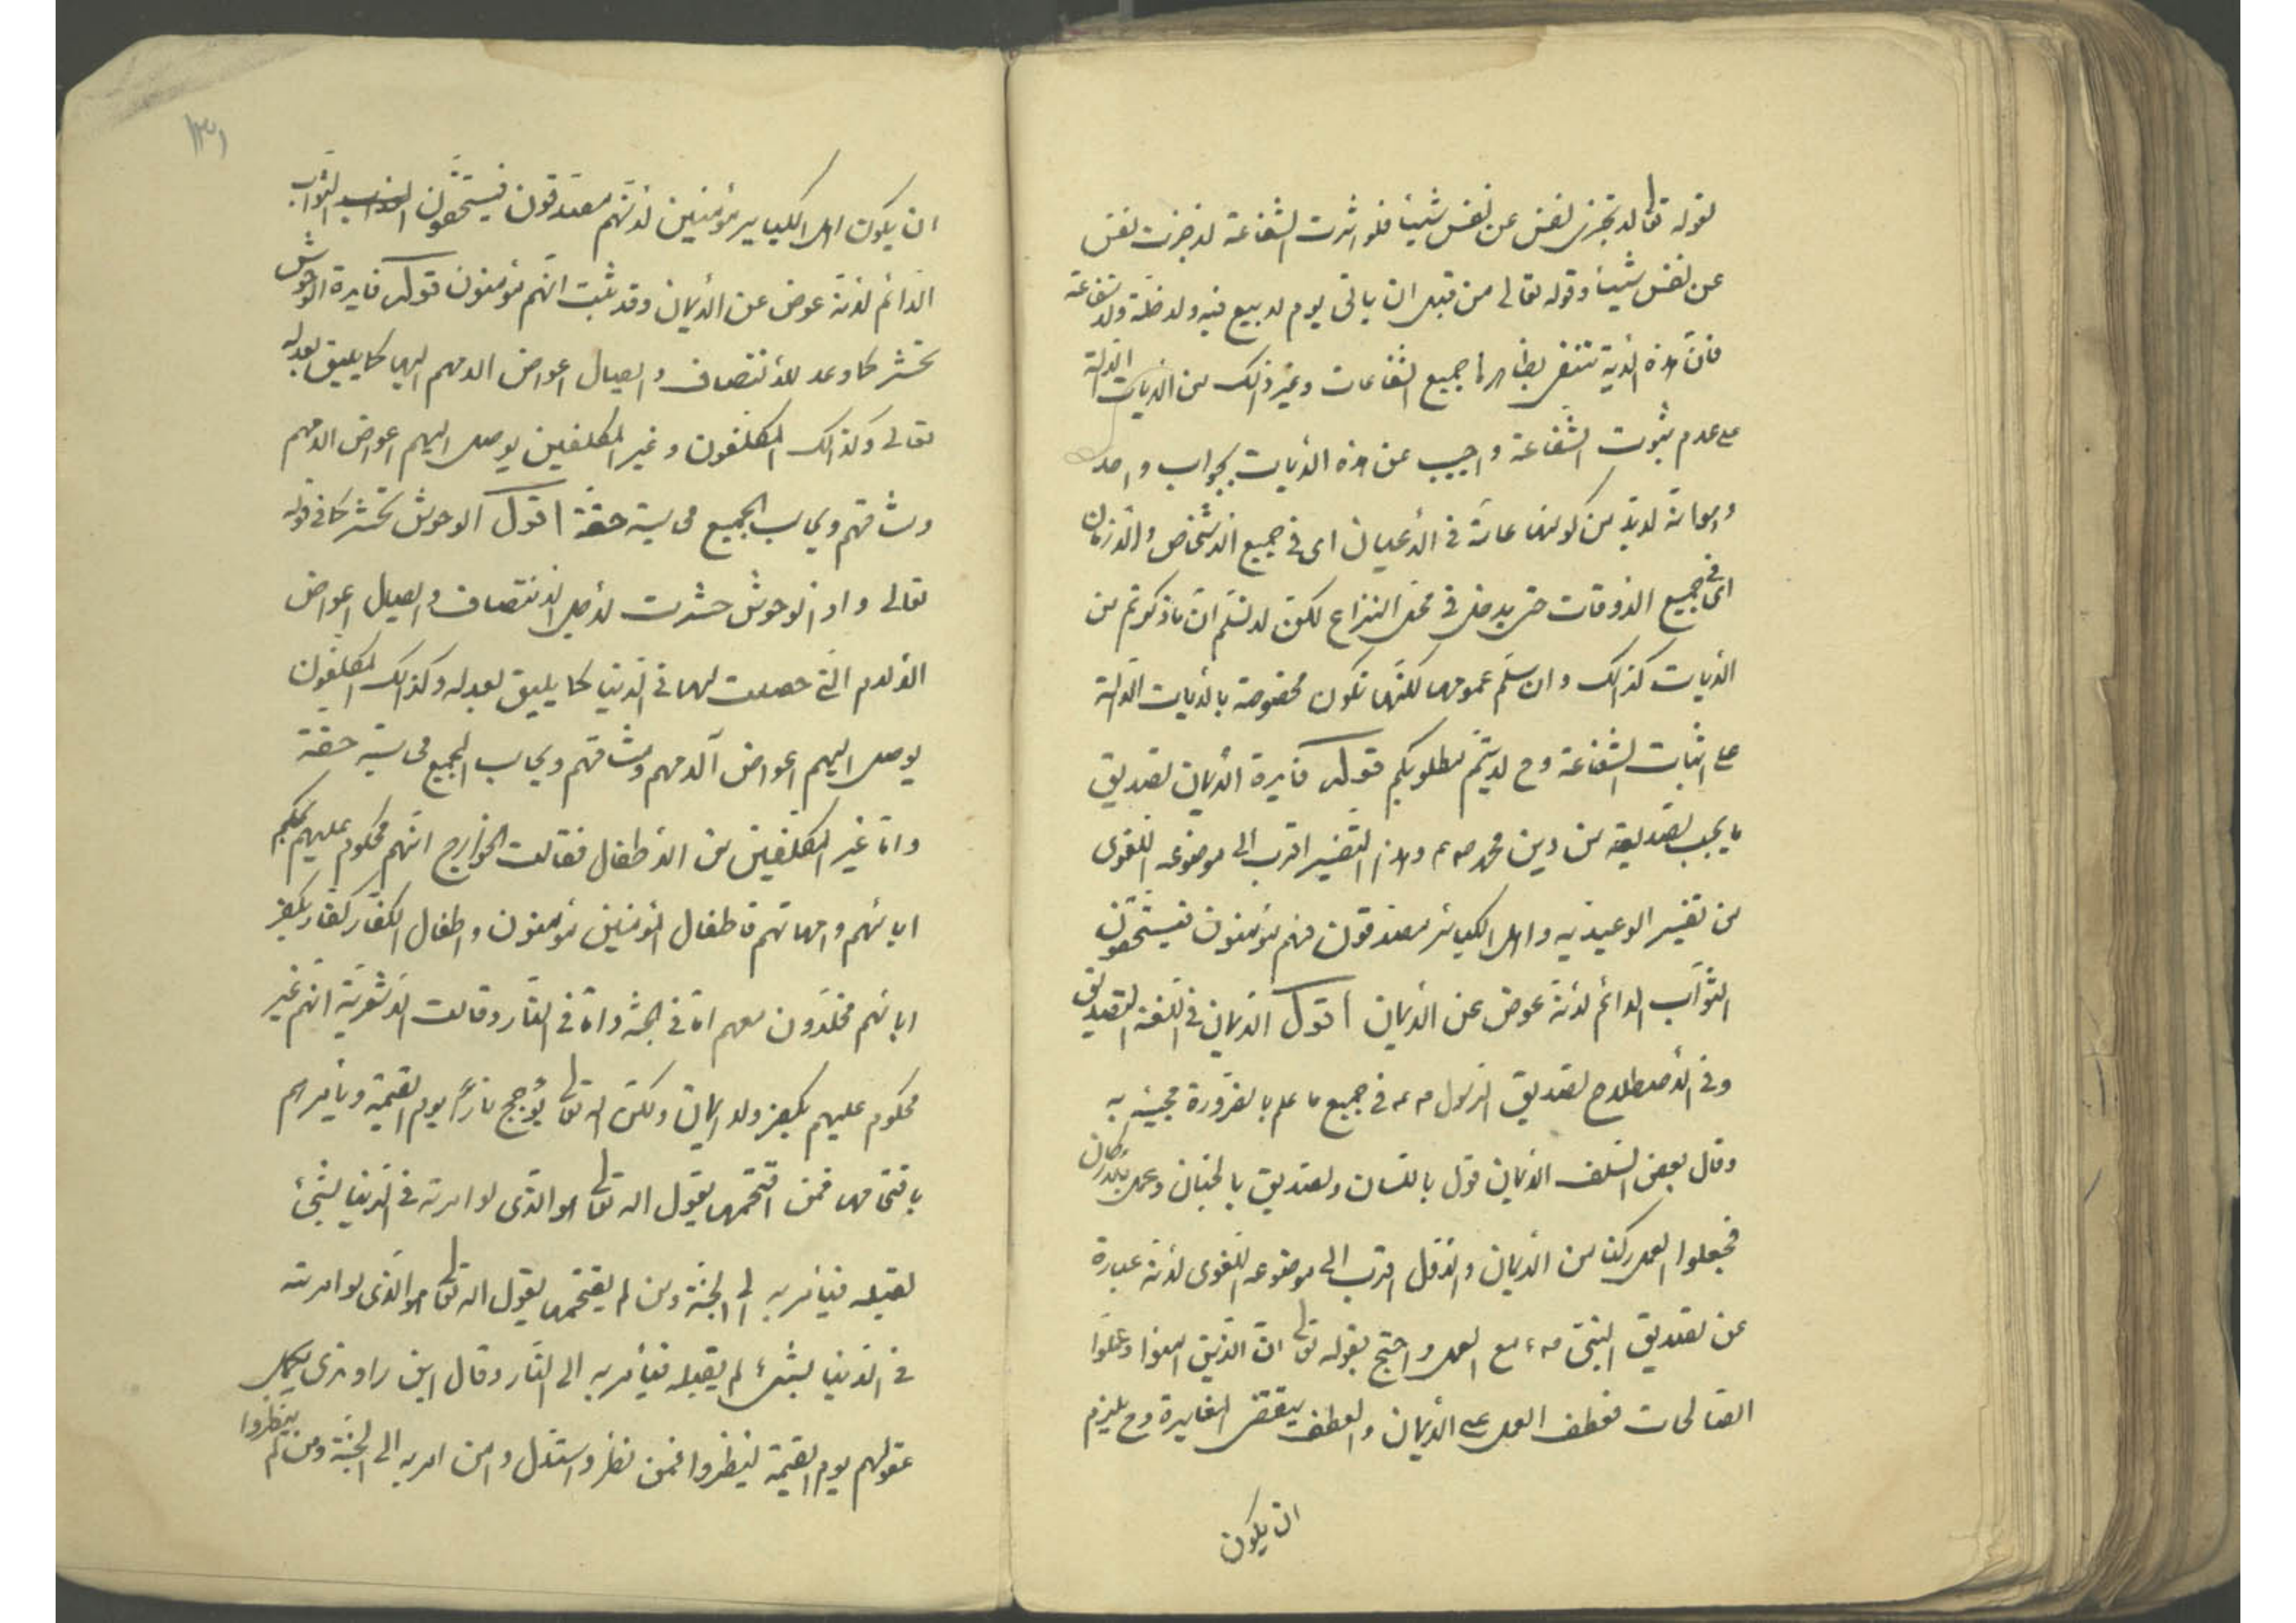 لقوله تعالى لا تجزى نفس عن نفس شيئا فلو اثرت الشفاعة لاجزت نفس
عن نفس شيئا وقوله تعالى من قبل ان ياتى يوم لا بيع فيه ولا خلة ولا شفاعة
فان هذه الأية تنفى بظاهرها جميع الشفاعات وغير ذلك من الايات الدالة
على عدم ثبوت الشفاعة واجيب عن هذه الأيات بجواب واحد
وهو انه لا بد من كونها عامة فى الأعيان اى فى جميع الاشخاص والازمان
اى فى جميع الاوقات حتى يدخل فى محل النزاع لكن لا نسلم ان ما ذكرتم من
الأيات كذلك وان سلم عمومها لكنها تكون مخصوصة بالأيات الدالة
على اثبات الشفاعة وح لا يتم مطلوبكم قوله فايدة الأيمان تصديق
ما يجب تصديقه من دين محمد ص ع وهذا التفسير اقرب الى موضوعه اللغوى
من تفسير الوعيديه واهل الكبائر مصدقون فهم مؤمنون فيستحقون
الثواب الدائم لأنه عوض عن الأيمان أقول الايمان فى اللغة التصديق
وفى الأصطلاح تصديق الرسول ص ع فى جميع ما علم بالضرورة مجيئه به
وقال بعض السلف الأيمان قول باللسان وتصديق بالجنان وعمل بالاركان
فجعلوا العمل ركنا من الأيمان والاول اقرب الى موضوعه اللغوى لأنه عبارة
عن تصديق النبى ص ع مع العمل واحتج بقوله تعالى ان الذين امنوا وعملوا
الصالحات فعطف العمل على الأيمان والعطف يقتضى المغايرة وح يلزم
ان يكون
١٣١
ان يكون اهل الكبايير مؤمنين لأنهم مصدقون فيستحقون الثواب
الدائم لأنه عوض عن الأيمان وقد ثبت انهم مؤمنون قوله فايدة الوحوش
تحشر كما وعد للأنتصاف وايصال اعواض الامهم اليها كما يليق بعدله
تعالى وكذلك المكلفون وغير المكلفين يوصل اليهم اعواض الامهم
ومشاقهم ويحاسب الجميع محاسبة حقة اقول الوحوش تحشر كما فى قوله
تعالى واذ الوحوش حشرت لأجل الانتصاف وايصال اعواض
الأولام التى حصلت لها فى الدنيا كما يليق بعدله وكذلك المكلفون
يوصل اليهم اعواض آلامهم ومشاقهم ويحاسب الجميع محاسبة حقة
واما غير المكلفين من الاطفال فقالت الخوارج انهم محكوم عليهم بحكم
ابائهم وامهاتهم فاطفال المؤمنين مؤمنون واطفال الكفار كفار بكفر
ابائهم مخلدون معهم اما فى الجنة واما فى النار وقالت الاشعرية انهم غير
محكوم عليهم بكفر ولا ايمان ولكن الله تعالى يؤجج نارا يوم القيمة ويأمرهم
باقتحامها فمن اقتحمها يقول الله تعالى هو الذى لو امرته فى الدنيا بشئ
لقبله فيأمر به الى الجنة ومن لم يقتحمها يقول الله تعالى هو الذى لو امرته
فى الدنيا بشئ لم يقبله فيأمر به الى النار وقال ابن راوندى يكمل
عقولهم يوم القيمة لينظروا فمن نظر واستدل وامن امر به الى الجنة ومن لم ينظروا